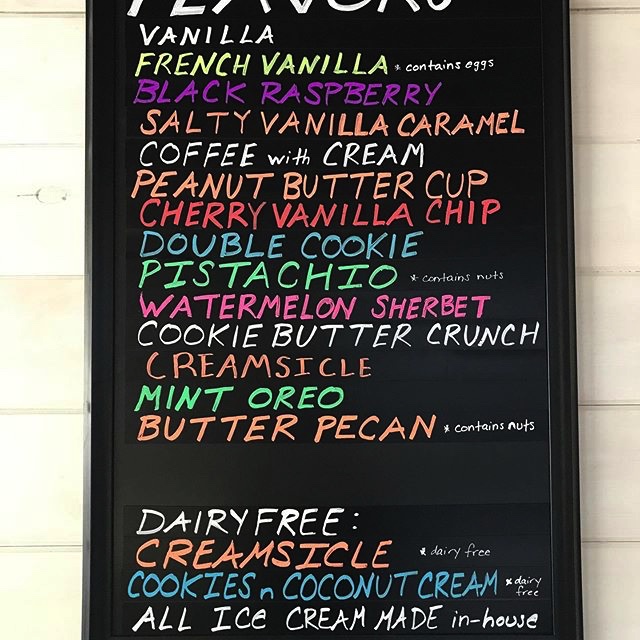 FLAVORS
VANILLA
FRENCH VANILLA * contains eggs
BLACK RASPBERRY
SALTY VANILLA CARAMEL
COFFEE with CREAM
PEANUT BUTTER CUP
CHERRY VANILLA CHIP
DOUBLE COOKIE
PISTACHIO * contains nuts
WATERMELON SHERBET
COOKIE BUTTER CRUNCH
CREAMSICLE
MINT OREO
BUTTER PECAN * contains nuts
DAIRY FREE:
CREAMSICLE * dairy free
COOKIES n COCONUT CREAM * dairy free
ALL ICe CREAM MADE in-house